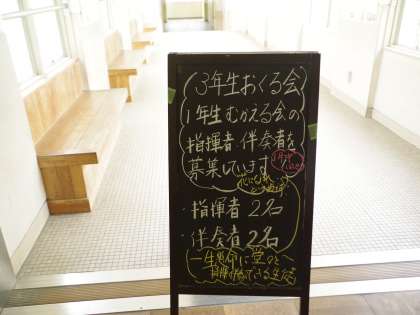 3年生おくる会
1年生むかえる会の
指揮者、伴奏者を
募集しています
・指揮者 2名
・伴奏者 2名
一生懸命に堂々と